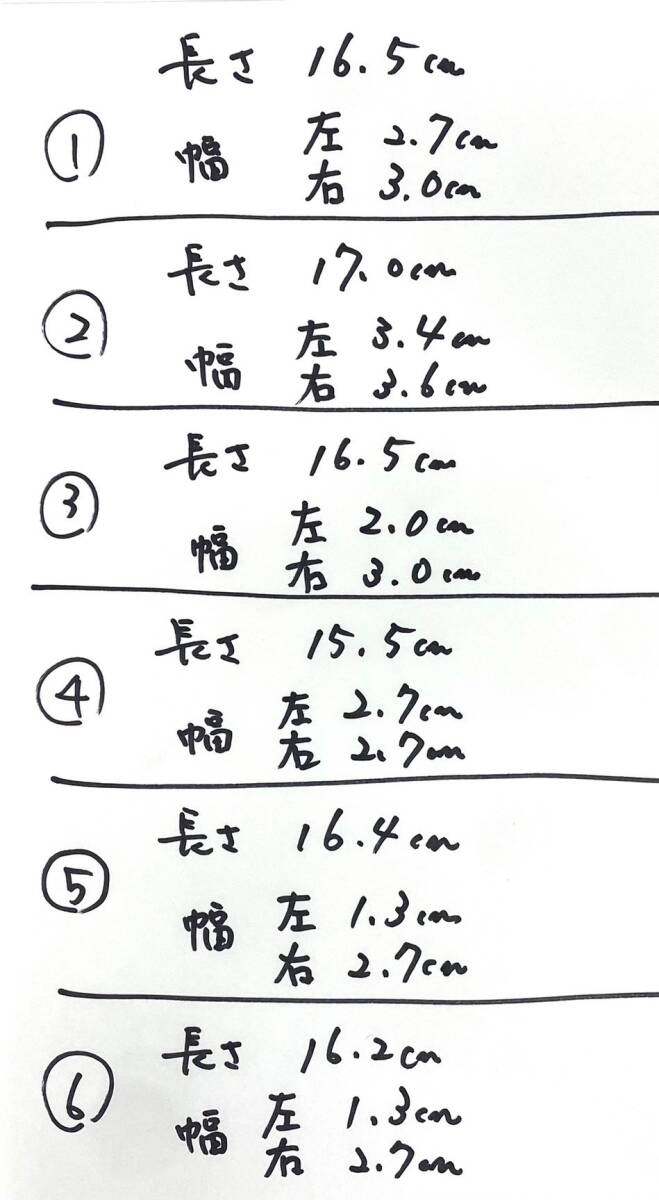 長さ 16.5cm
① 幅 左 2.7cm
右 3.0cm
長さ 17.0cm
② 幅 左 3.4cm
右 3.6cm
長さ 16.5cm
③ 幅 左 2.0cm
右 3.0cm
長さ 15.5cm
④ 幅 左 2.7cm
右 2.7cm
長さ 16.4cm
⑤ 幅 左 1.3cm
右 2.7cm
長さ 16.2cm
⑥ 幅 左 1.3cm
右 2.7cm